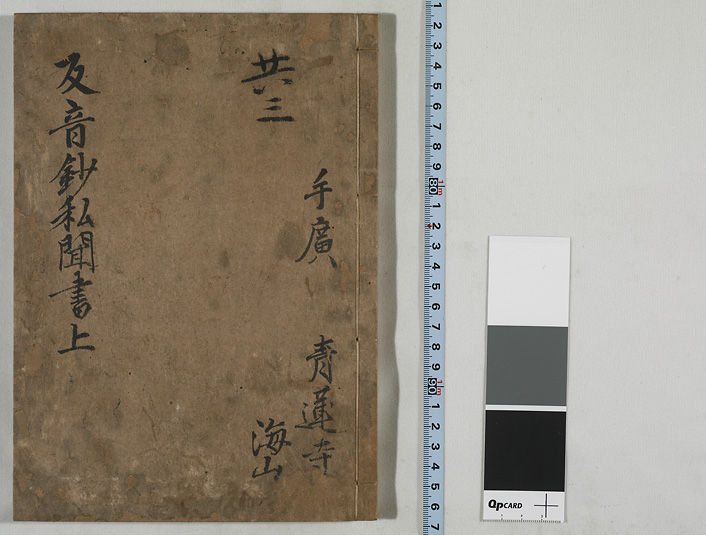 共三
手廣 青蓮寺
海山
反音鈔私聞書上
1 2 3 4 5 6 7 8 9 80 1m 1 2 3 4 5 6 7 8 9 90 1m 1 2 3 4 5 6 7
QPCARD